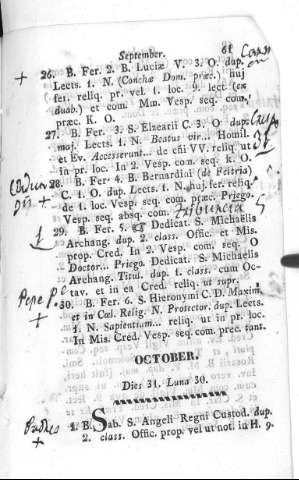 September. 81
26. B. Fer. 2. B. Luciæ V. 3. O. dup.
Lects. 1. N. (Conchæ Dom. præc.) huj
fer. reliq. pr. vel 1. loc. 9. lect. (ex
duab.) et com. Mm. Vesp seq. com.
præc. K. O.
27. B. Fer. 3. S Elzearii C. 3. O dup.
maj. Lects. 1. N. Beatus vir... Homil.
et Ev. Accesserunt... de cñi VV. reliq. ut
in pr. loc. In 2. Vesp com. seq. k. O.
28. B. Fer. 4. B. Bernardini (de Feltria)
C. 1. O. dup. Lects. 1. N. huj. fer. reliq.
de 1. loc. Vesp. seq. com. præc. Priego.
Vesp. seq. absq. com.
29. B. Fer. 5. Dedicat. S. Michaëlis
Archang. dup. 2. class. Offic. et Mis.
prop. Cred. In 2. Vesp. com. seq. O
Doctor... Priego. Dedicat. S. Michaëlis
Archang. Titul. dup. 1. class. cum Oc-
tav. et in ea Cred. reliq. ut supr.
30. B. Fer. 6. S. Hieronymi C. D. Maxim.
et in Cœl. Relig. N. Protector. dup. Lects.
1. N. Sapientiam... reliq. ut in pr. loc.
In Mis. Cred. Vesp. seq. com. prec. tant.
OCTOBER.
Dies 31. Luna 30.
1. B. Sab. S. Angeli Regni Custod. dup.
2. class. Offic. prop. vel ut not. in H. 9.